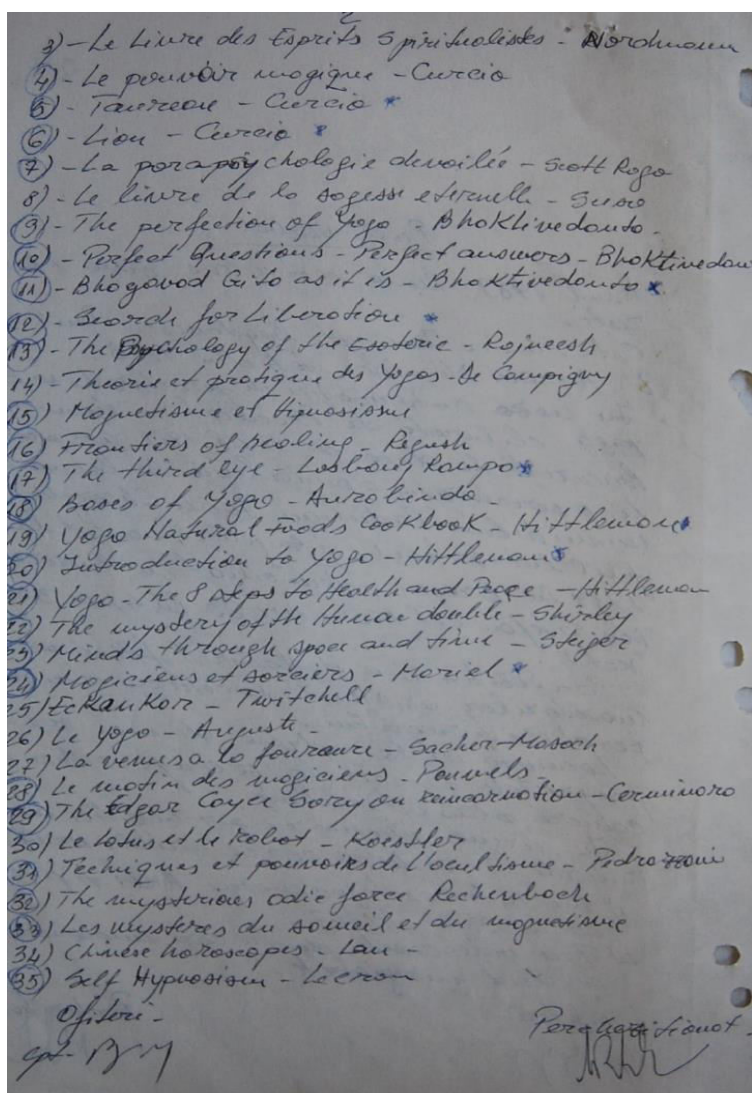 2
3) - Le Livre des Esprits Spiritualistes - Nordmann
4) - Le pouvoir magique - Curcio
5) - Taureau - Curcio *
6) - Lion - Curcio *
7) - La parapsychologie devoilée - Scott Rogo
8) - Le livre de la sagesse eternelle - Suso
9) - The perfection of Yoga - Bhaktivedanta -
10) - Perfect Questions - Perfect answers - Bhaktivedan
11) - Bhagavad Gita as it is - Bhaktivedanta *
12) - Search for Liberation *
13) - The Psychology of the Esoteric - Rajneesh
14) - Theorie et pratique des Yogas - De Campigny
15) Magnetisme et Hipnosisme
16) Frontiers of healing - Regush
17) The third eye - Lobsang Rampa *
18) Bases of Yoga - Aurobindo -
19) Yoga Natural Foods CookBook - Hittleman *
20) Introduction to Yoga - Hittleman *
21) Yoga - The 8 steps to Health and Peace - Hittleman
22) The mystery of the Human double - Shirley
23) Minds through space and time - Steiger
24) Magiciens et sorciers - Mariel *
25) Eckankar - Twitchell
26) Le yoga - Auguste -
27) La venus a la fourrure - Sacher-Masoch
28) Le matin des magiciens - Pauwels -
29) The Edgar Cayce Story on reincarnation - Cerminara
30) Le lotus et le robot - Koestler
31) Techniques et pouvoirs de l'ocultisme - Pedrazzani
32) The mysterious odic force Reichenbach
33) Les mysteres du someil et du magnetisme
34) Chinese horoscopes - Lau -
35) Self Hypnosism - Lecron
Ofiteri -
Percheziționat -
cpt.